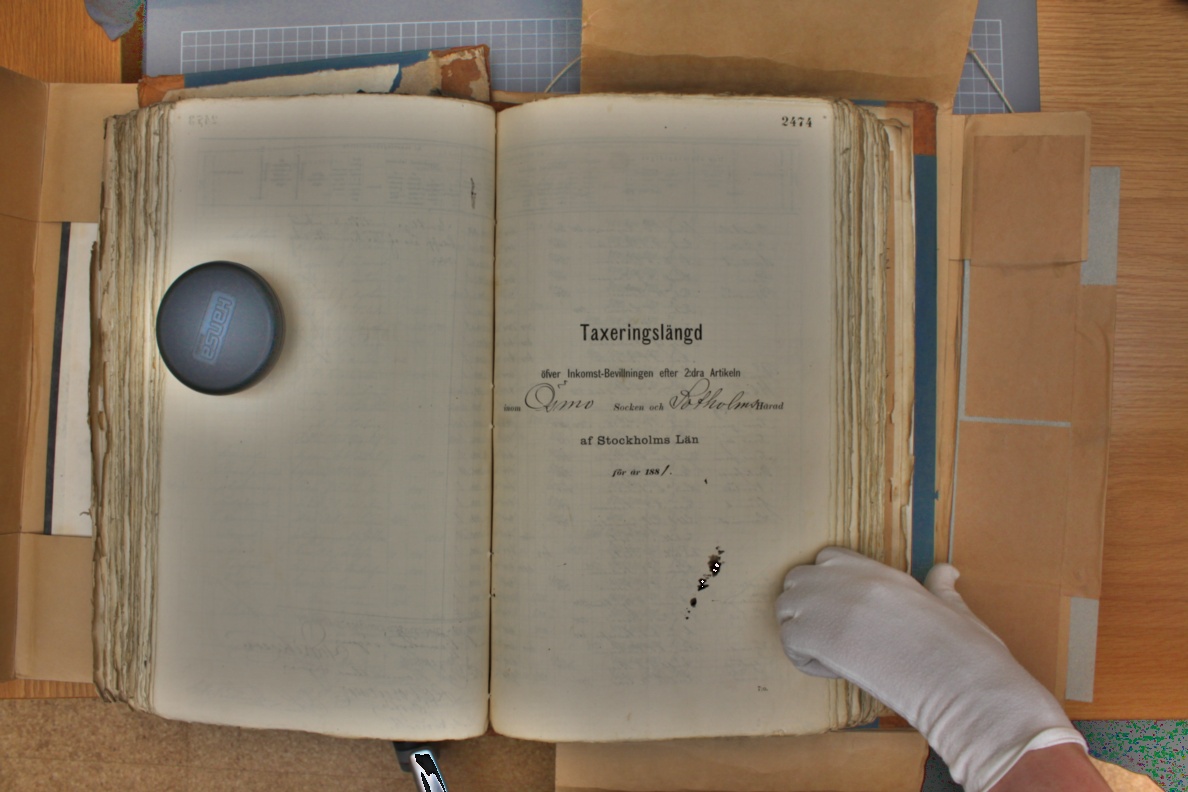 2474
Hansa
Taxeringslängd
öfver Inkomst-Bevillningen efter 2:dra Artikeln
inom Ösmo Socken och Sotholms Härad
af Stockholms Län
för år 1881.